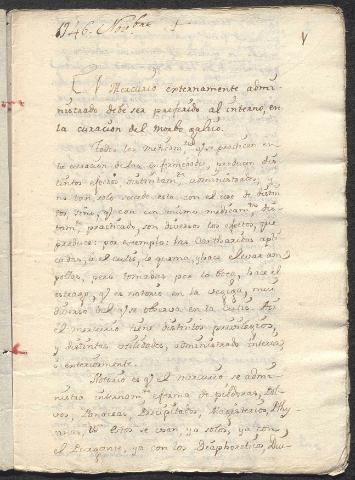 1746. Novbre 1
El Mercurio externamente admi-
nistrado debe ser preferido al interno, en
la curacion del Morbo galico.
Todos los medicam.tos q.e se practican en
la curacion de las enfermedades, producen dis-
tintos efectos distintam.te administrados, y
no tan solo sucede esto con el uso de distin-
tos, sino q.e con un mismo medicam.to dis-
tam.te practicado, son diversos los efectos, que
produce: por exemplo: las Cantharidas apli-
cadas, a el cutis, lo quema, y hace llevar am-
pollas, pero tomadas por la boca, hace el
estrago, q.e es notorio en la vegiga, mui
diverso del q.e se observa en la cutis. Asi
el mercurio tiene distintos privilegios,
y distintas utilidades, administrado interna,
o exteriormente.
Notorio es q.e el mercurio se admi-
nistra internam.te en forma de pildoras, Pol-
vos, Panaceas, Precipitados, Magisterios,
estos se usan ya solos, ya con
el Purgante, ya con los Diaphoreticos, Diu-